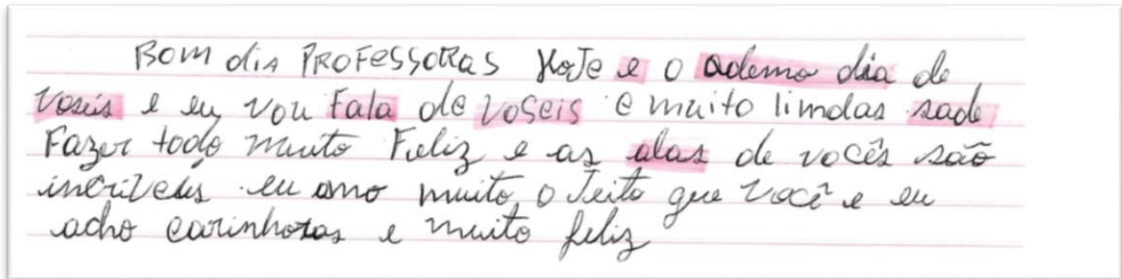 Bom dia PROFESSORAS HoJe e o ademo dia de
voseis e eu vou Fala de voseis e muito limdas sade
Fazer todo muito Feliz e as alas de vocês são
incríveis eu amo muito o Jeito que você e eu
acho carinhosas e muito feliz